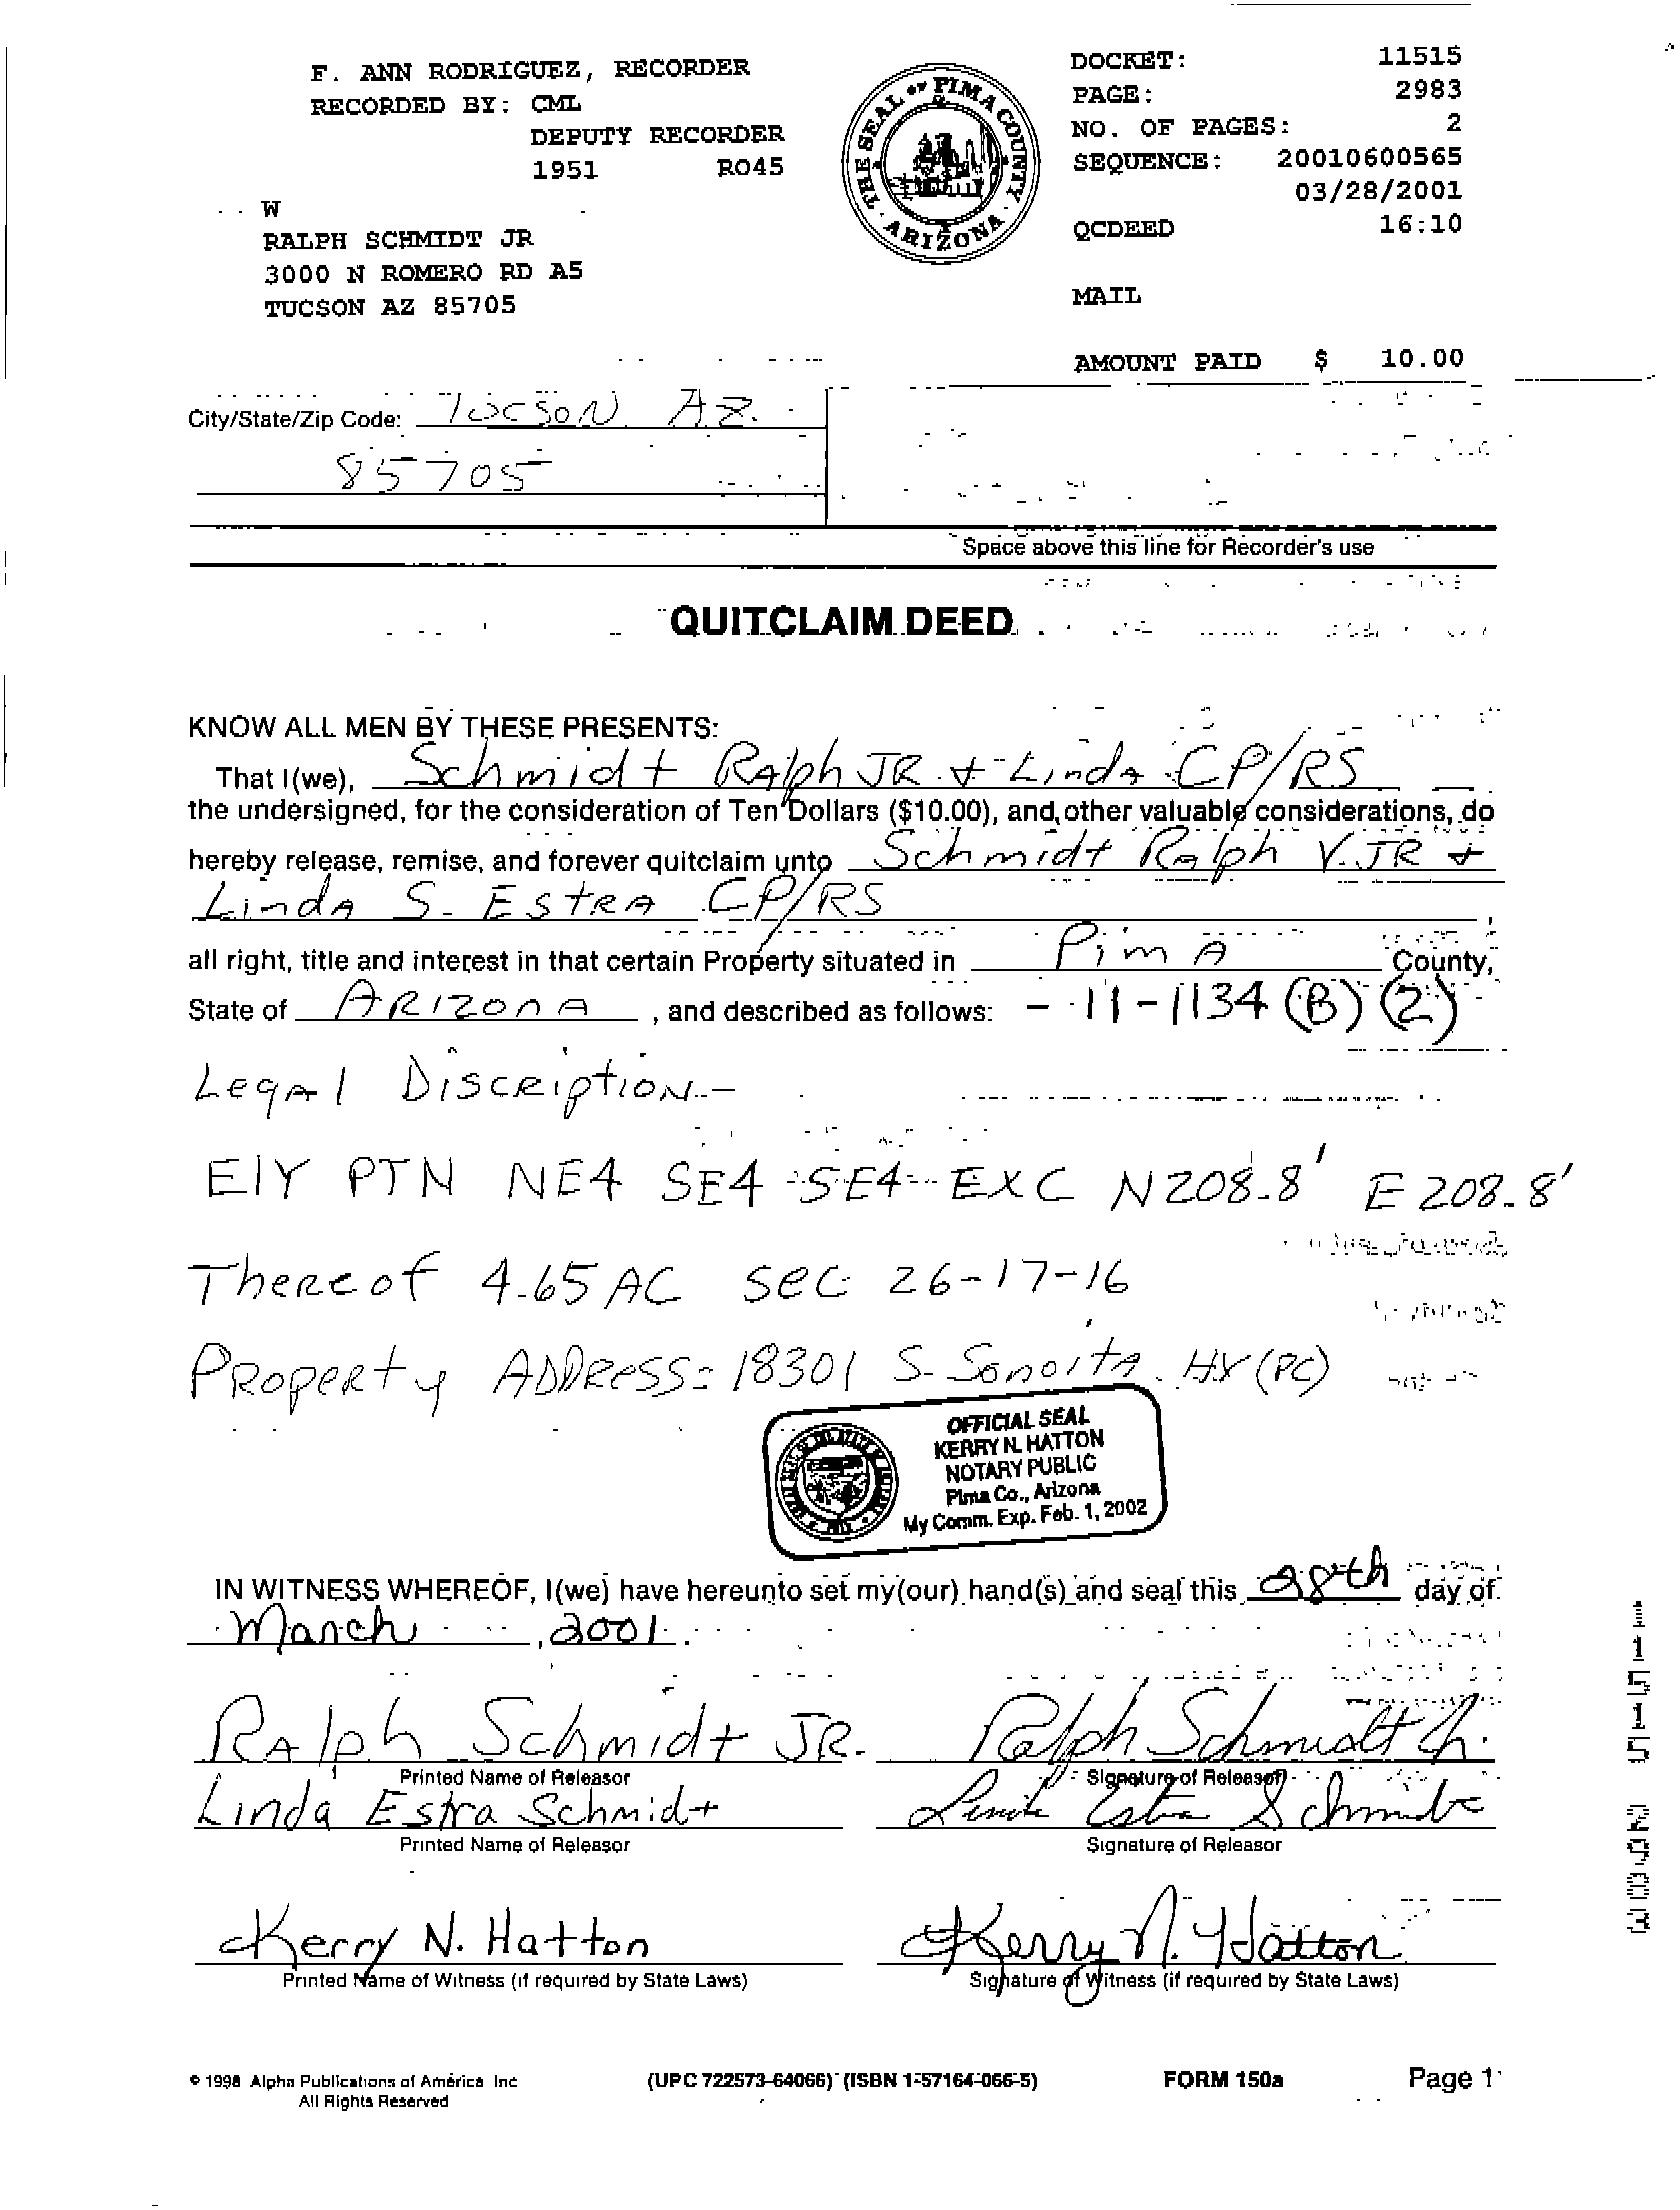 F. ANN RODRIGUEZ, RECORDER
RECORDED BY: CML
DEPUTY RECORDER
1951 RO45
W
RALPH SCHMIDT JR
3000 N ROMERO RD A5
TUCSON AZ 85705
THE SEAL OF PIMA COUNTY
ARIZONA
DOCKET: 11515
PAGE: 2983
NO. OF PAGES: 2
SEQUENCE: 20010600565
03/28/2001
QCDEED 16:10
MAIL
AMOUNT PAID $ 10.00
City/State/Zip Code: Tucson AZ.
85705
Space above this line for Recorder's use
QUITCLAIM DEED
KNOW ALL MEN BY THESE PRESENTS:
That I(we), Schmidt Ralph JR + Linda CP/RS
the undersigned, for the consideration of Ten Dollars ($10.00), and other valuable considerations, do
hereby release, remise, and forever quitclaim unto Schmidt Ralph V. JR +
Linda S. Estra CP/RS
all right, title and interest in that certain Property situated in Pima County,
State of Arizona, and described as follows: - 11-1134 (B) (2)
Legal Discription -
ElY PTN NE4 SE4 SE4 EXC N208.8' E 208.8'
Thereof 4.65 AC Sec 26-17-16
Property Address: 18301 S. Sonoita HY (PC)
OFFICIAL SEAL
KERRY N. HATTON
NOTARY PUBLIC
Pima Co., Arizona
My Comm. Exp. Feb. 1, 2002
IN WITNESS WHEREOF, I(we) have hereunto set my(our) hand(s) and seal this 28th day of
March, 2001.
Ralph Schmidt JR. Ralph Schmidt Jr.
Printed Name of Releasor Signature of Releasor
Linda Estra Schmidt Linda Estra Schmidt
Printed Name of Releasor Signature of Releasor
Kerry N. Hatton Kerry N. Hatton
Printed Name of Witness (if required by State Laws) Signature of Witness (if required by State Laws)
© 1998 Alpha Publications of America Inc (UPC 722573-64066) (ISBN 1-57164-066-5) FORM 150a Page 1
All Rights Reserved